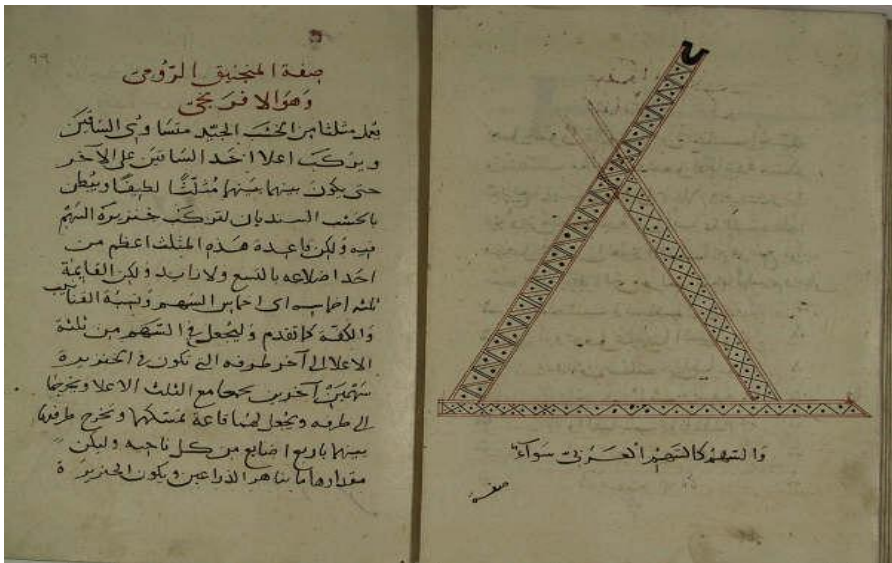 ٩٩
صفة المنجنيق الرومى
وهو الافرنجى
يعمل مثلثا من الخشب الجيد متساوى الساقين
ويركب اعلا احد الساقين على الآخر
حتى يكون بينهما مثلثا لطيفا ويبطن
بالخشب السنديان لتركب خنزيرة السهم
فيه ولكن قاعدة هذه المثلث اعظم من
احد اضلاعه بالتسع ولا تزايد ولكن القايمة
ثلثه اخماس السهم ونسبة
والكفة كما تقدم وليجعل فى السهم من ثلثه
الاعلا الى آخر طرفه التى تكون فى الخنزيرة
سهمين آخرين مع الثلث الاعلا
الى طرفه ويجعل لهما تمسكهما ويخرج طرفهما
بينهما باربع اصابع من كل ناحيه وليكن
مقدارهما ما الذراعين ويكون الخنزيرة
والسهم كالسهم العربى سوآء
صفة